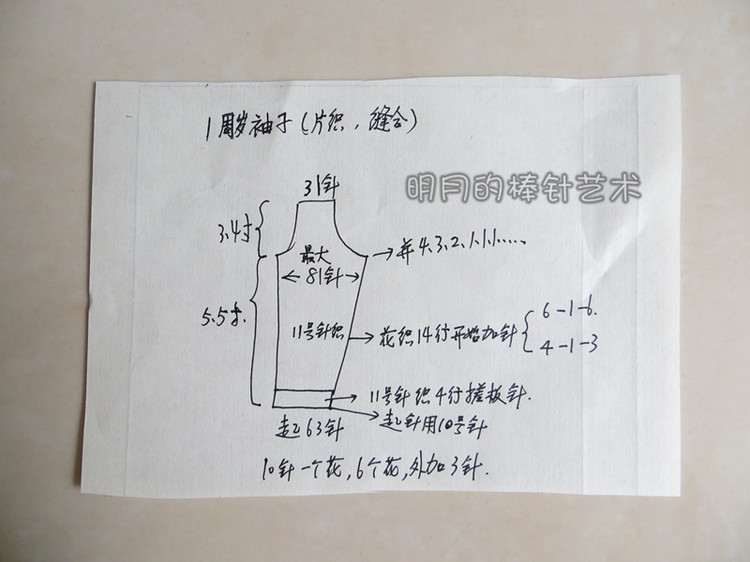 1周岁袖子(片织,缝合)
31针
明月的棒针艺术
3.4寸
并4、3、2、1、1、1……
最大
81针
5.5寸.
11号针织
花织14行开始加针
6-1-6.
4-1-3
11号针织4行搓板针.
起针用10号针
起63针
10针一个花,6个花,外加3针.